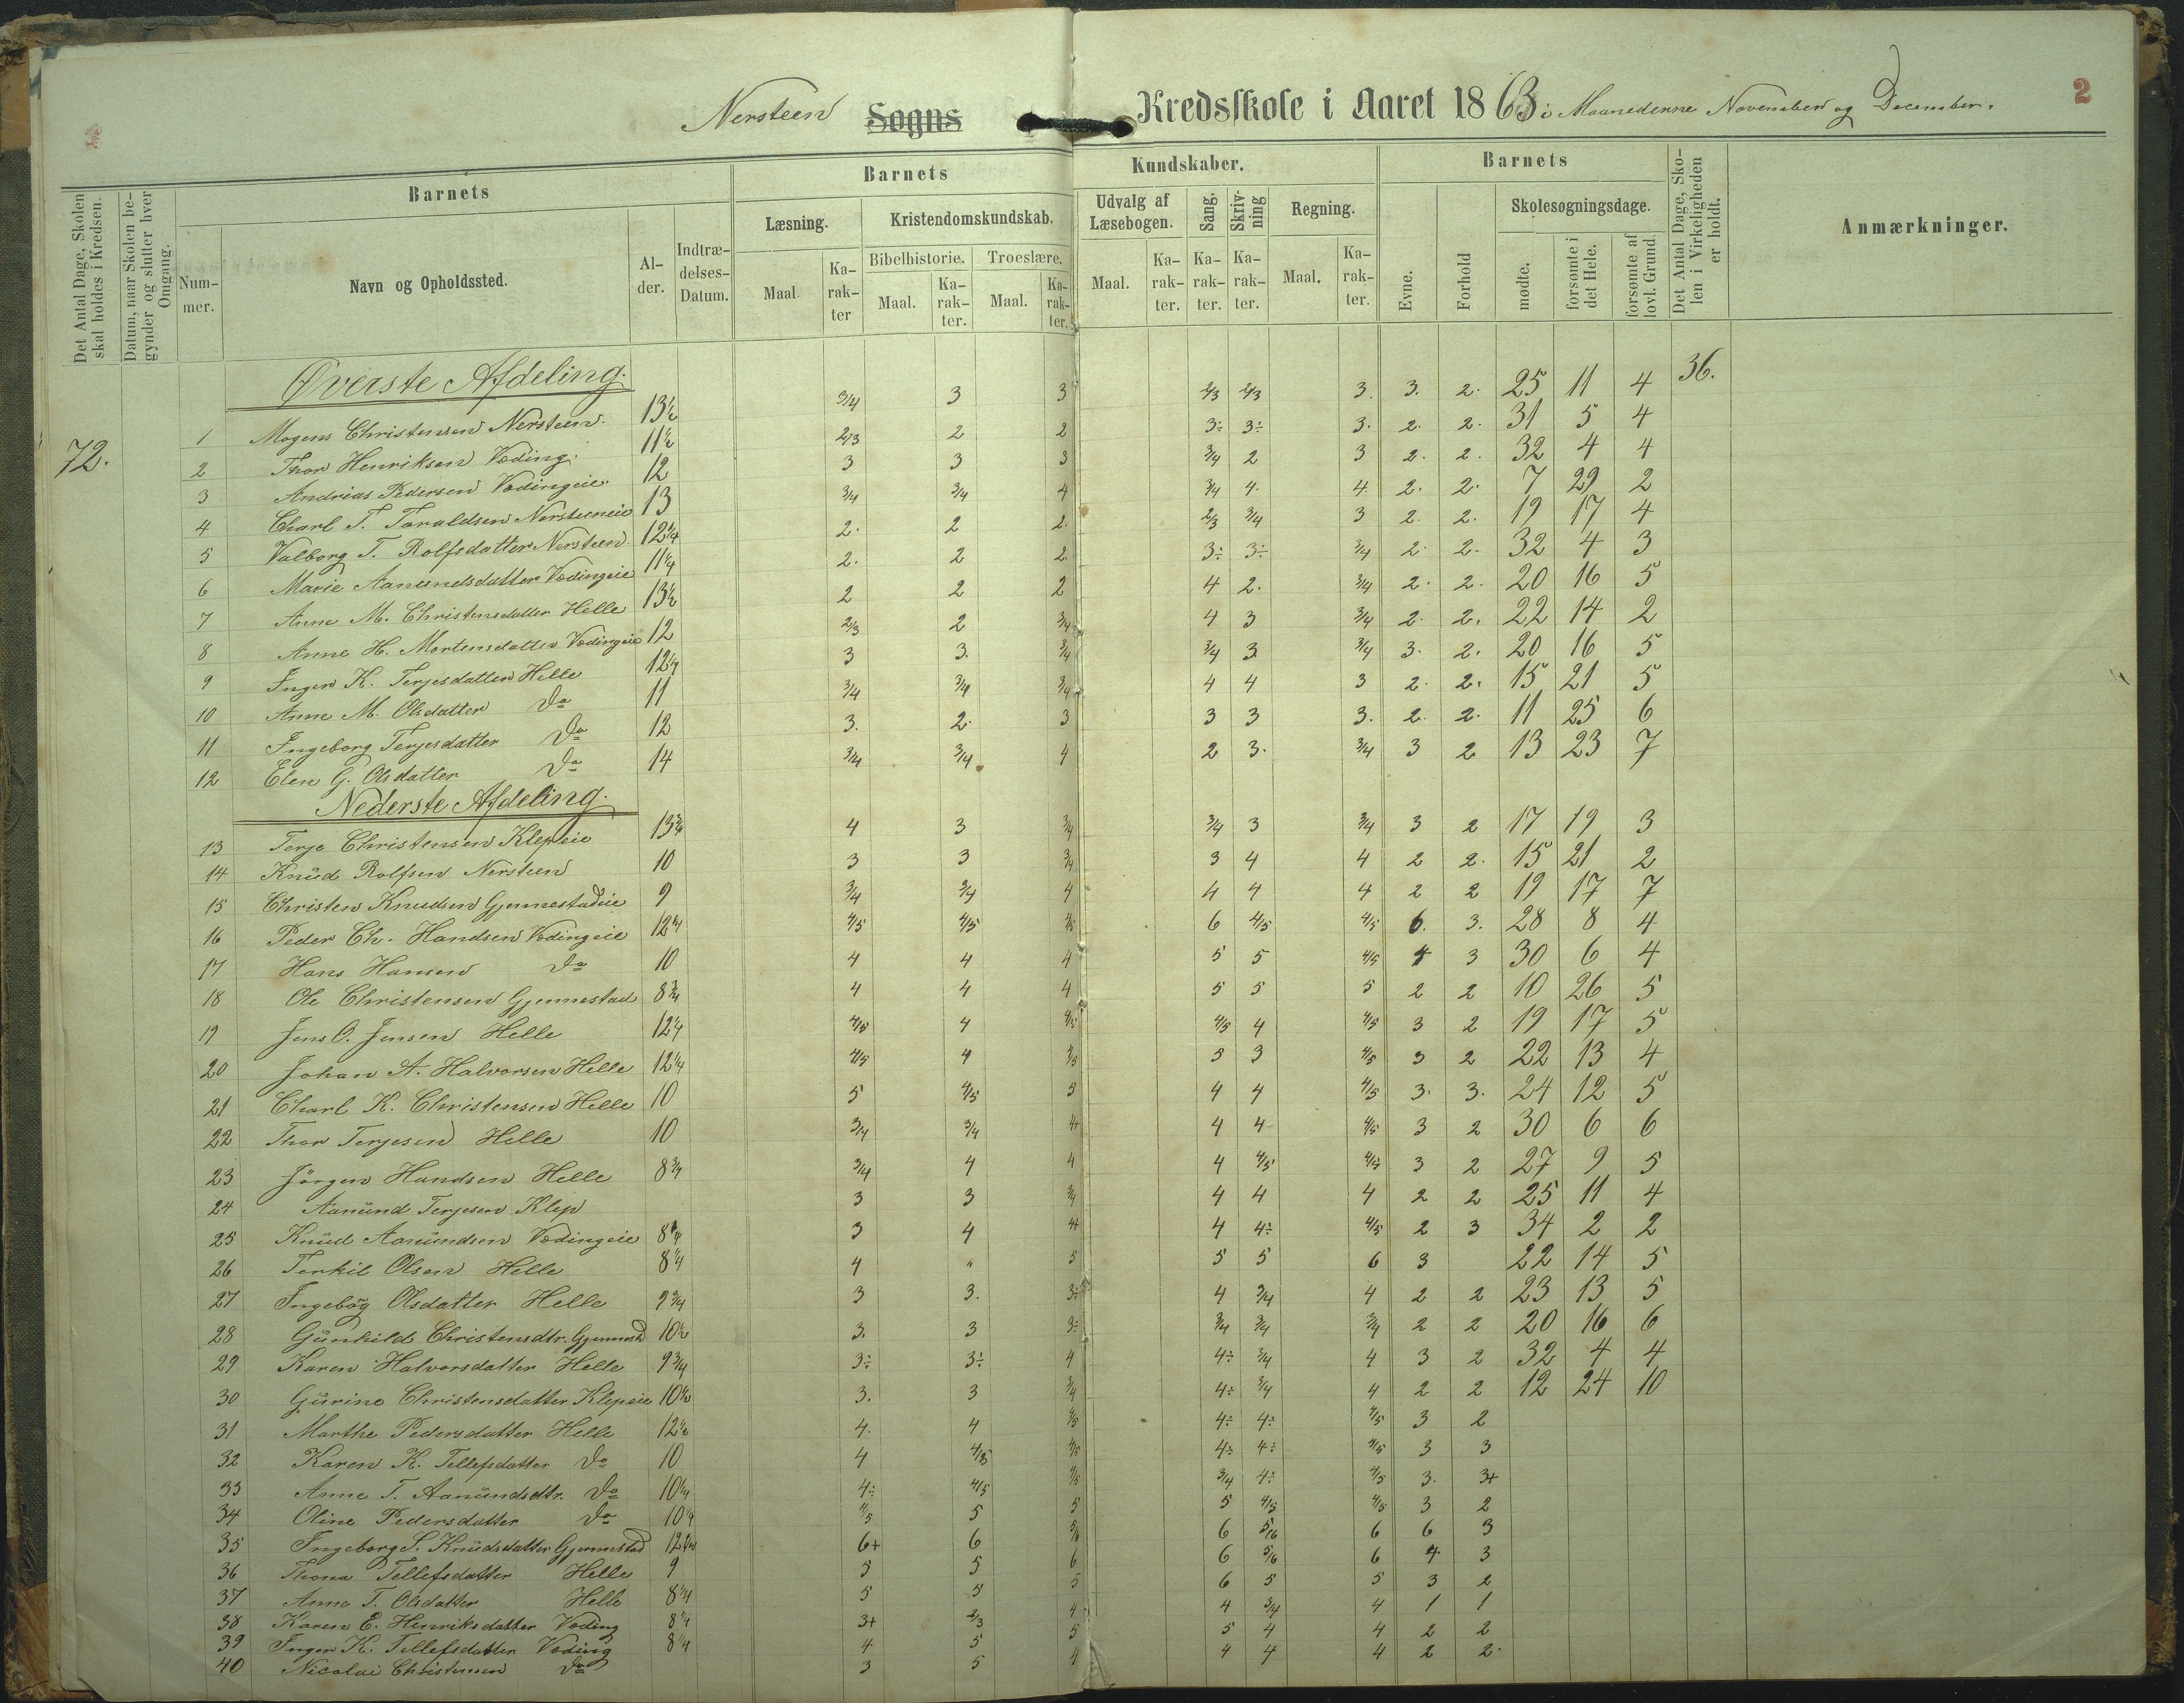 Nersteen Sogns Kredsskole i Aaret 1863 i Maanederne November og December.
2
Det Antal Dage, Skolen skal holdes i Kredsen.
Datum, naar Skolen begynder og slutter hver Omgang.
Barnets
Nummer.
Navn og Opholdssted.
Alder.
Indtrædelses-Datum.
Barnets Kundskaber.
Læsning.
Maal.
Karakter
Kristendomskundskab.
Bibelhistorie.
Maal.
Karakter.
Troeslære.
Maal.
Karakter.
Udvalg af Læsebogen.
Maal.
Karakter.
Sang.
Karakter.
Skrivning
Karakter.
Regning.
Maal.
Karakter.
Barnets
Evne.
Forhold
Skolesøgningsdage.
mødte.
forsømte i det Hele.
forsømte af lovl. Grund.
Det Antal Dage, Skolen i Virkeligheden er holdt.
Anmærkninger.
72.
36.
Øverste Afdeling.
1 Mogens Christensen Nersteen. 13½ 3/4 3 3 2/3 2/3 3. 3. 2. 25 11 4
2 Thor Henriksen Voding. 11½ 2/3 2 2 3÷ 3÷ 3. 2. 2. 31 5 4
3 Andrias Pedersen Vodingeie. 12 3 3 3 3/4 2 3 2. 2. 32 4 4
4 Charl T. Taraldsen Nersteeneie 13 3/4 3/4 4 3/4 4. 4. 2. 2. 7 29 2
5 Valborg T. Rolfsdatter Nersteen 12¼ 2. 2 2. 2/3 3/4 3 2. 2. 19 17 4
6 Marie Aanundsdatter Vodingeie 11¼ 2. 2 2 3÷ 3÷ 3/4 2. 2. 32 4 3
7 Anne M. Christensdatter Helle 13½ 2 2 2 4 2. 3/4 2. 2. 20 16 5
8 Anne H. Mortensdatter Vodingeie 12 2/3 2 3/4 4 3 3/4 2. 2. 22 14 2
9 Inger K. Terjesdatter Helle 12¼ 3 3. 3/4 3/4 3 3/4 3. 2. 20 16 5
10 Anne M. Olsdatter Do 11 3/4 3/4 3/4 4 4 3 2. 2. 15 21 5
11 Ingeborg Terjesdatter Do 12 3. 2. 3 3 3 3. 2. 2. 11 25 6
12 Elen G. Olsdatter Do 14 3/4 3/4 4 2 3. 3/4 3 2 13 23 7
Nederste Afdeling.
13 Terje Christensen Klepeie 13¾ 4 3 3/4 3/4 3 3/4 3 2 17 19 3
14 Knüd Rolfsen Nersteen 10 3 3 3/4 3 4 4 2 2. 15 21 2
15 Christen Knudsen Gjennestadeie 9 3/4 3/4 4 4 4 4 2 2 19 17 7
16 Peder Ch. Handsen Vodingeie 12¼ 4/5 4/5 4/5 6 4/5 4/5 6. 3. 28 8 4
17 Hans Hansen Do 10 4 4 4 5 5 4/5 4 3 30 6 4
18 Ole Christensen Gjennestad 8¾ 4 4 4 5 5 5 2 2 10 26 5
19 Jens O. Jensen Helle 12¼ 4/5 4 4/5 4/5 4 4/5 3 2 19 17 5
20 Johan A. Halvorsen Helle 12¼ 4/5 4 4/5 5 3 4/5 3 2 22 13 4
21 Charl K. Christensen Helle 10 5 4/5 5 4 4 4/5 3. 3. 24 12 5
22 Thor Terjesen Helle 10 3/4 3/4 4+ 4 4 4/5 3 2 30 6 6
23 Jörgen Handsen Helle 8¾ 3/4 4 4 4 4/5 4/5 3 2 27 9 5
24 Aanünd Terjesen Klep 3 3 3/4 4 4 4 2 2 25 11 4
25 Knüd Aanündsen Vodingeie 8¼ 3 4 4+ 4 4÷ 4/5 2 3 34 2 2
26 Terkil Olsen Helle 8¼ 4 " 5 5 5 6 3 22 14 5
27 Ingebög Olsdatter Helle 9¾ 3 3. 3÷ 4 3/4 4 2 2 23 13 5
28 Günhild Christensdtr. Gjennestd 10½ 3. 3 3÷ 3/4 3/4 3/4 2 2 20 16 6
29 Karen Halvorsdatter Helle 9¾ 3÷ 3÷ 4 4÷ 3/4 4 3 2 32 4 4
30 Gürine Christensdatter Klepeie 10½ 3. 3 3/4 4÷ 3/4 4 2 2 12 24 10
31 Marthe Pedersdatter Helle 12½ 4. 4 4/5 4÷ 4÷ 4/5 3 2
32 Karen K. Tellefsdatter Do 10 4 4/5 4/5 4÷ 4÷ 4/5 3 3
33 Anne T. Aanündsdtr. Do 10¼ 4÷ 4/5 4/5 3/4 4÷ 4/5 3. 3+
34 Oline Pedersdatter Do 10¼ 4/5 5 5 5 4/5 4/5 3 2
35 Ingeborg S. Knüdsdatter Gjennestad 6+ 6 5/6 6 5/6 6 6 3
36 Thona Tellefsdatter Helle 9 5 5 6 6 5/6 6 4 3
37 Anne T. Olsdatter Helle 8¼ 5 5 5 6 5 5 3 2
38 Karen E. Henriksdatter Voding 8¼ 3+ 2/3 4 4 3/4 4 1 1
39 Inger K. Tellefsdatter Voding 8¼ 4 5 5 5 4 4 2 2
40 Nicolai Christensen Do 3 5 4 4 4 4 2 2.